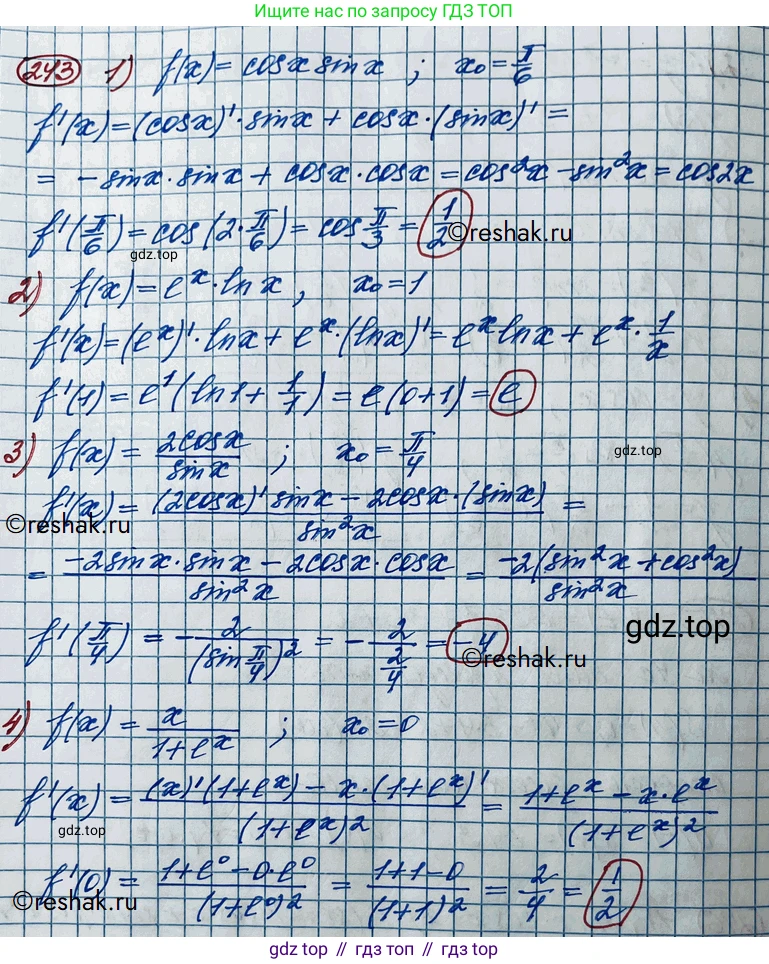 Ищите нас по запросу ГДЗ ТОП
243 1) f(x) = cosx sinx ; x₀ = π/6
f'(x) = (cosx)'·sinx + cosx·(sinx)' =
= -sinx·sinx + cosx·cosx = cos²x - sin²x = cos2x
f'(π/6) = cos(2·π/6) = cos π/3 = 1/2 ©reshak.ru
gdz.top
2) f(x) = eˣ·lnx, x₀ = 1
f'(x) = (eˣ)'·lnx + eˣ·(lnx)' = eˣlnx + eˣ·1/x
f'(1) = e¹(ln1 + 1/1) = e(0+1) = e
3) f(x) = 2cosx/sinx ; x₀ = π/4 gdz.top
f'(x) = ((2cosx)' sinx - 2cosx·(sinx))/sin²x =
©reshak.ru
= (-2sinx·sinx - 2cosx·cosx)/sin²x = -2(sin²x + cos²x)/sin²x
gdz.top
f'(π/4) = -2/(sin π/4)² = -2/(2/4) = -4
©reshak.ru
4) f(x) = x/(1+eˣ) ; x₀ = 0
f'(x) = ((x)'(1+eˣ) - x·(1+eˣ)')/(1+eˣ)² = (1+eˣ - x·eˣ)/(1+eˣ)²
gdz.top
f'(0) = (1+e⁰ - 0·e⁰)/(1+e⁰)² = (1+1-0)/(1+1)² = 2/4 = 1/2
©reshak.ru
gdz.top // гдз топ // gdz.top